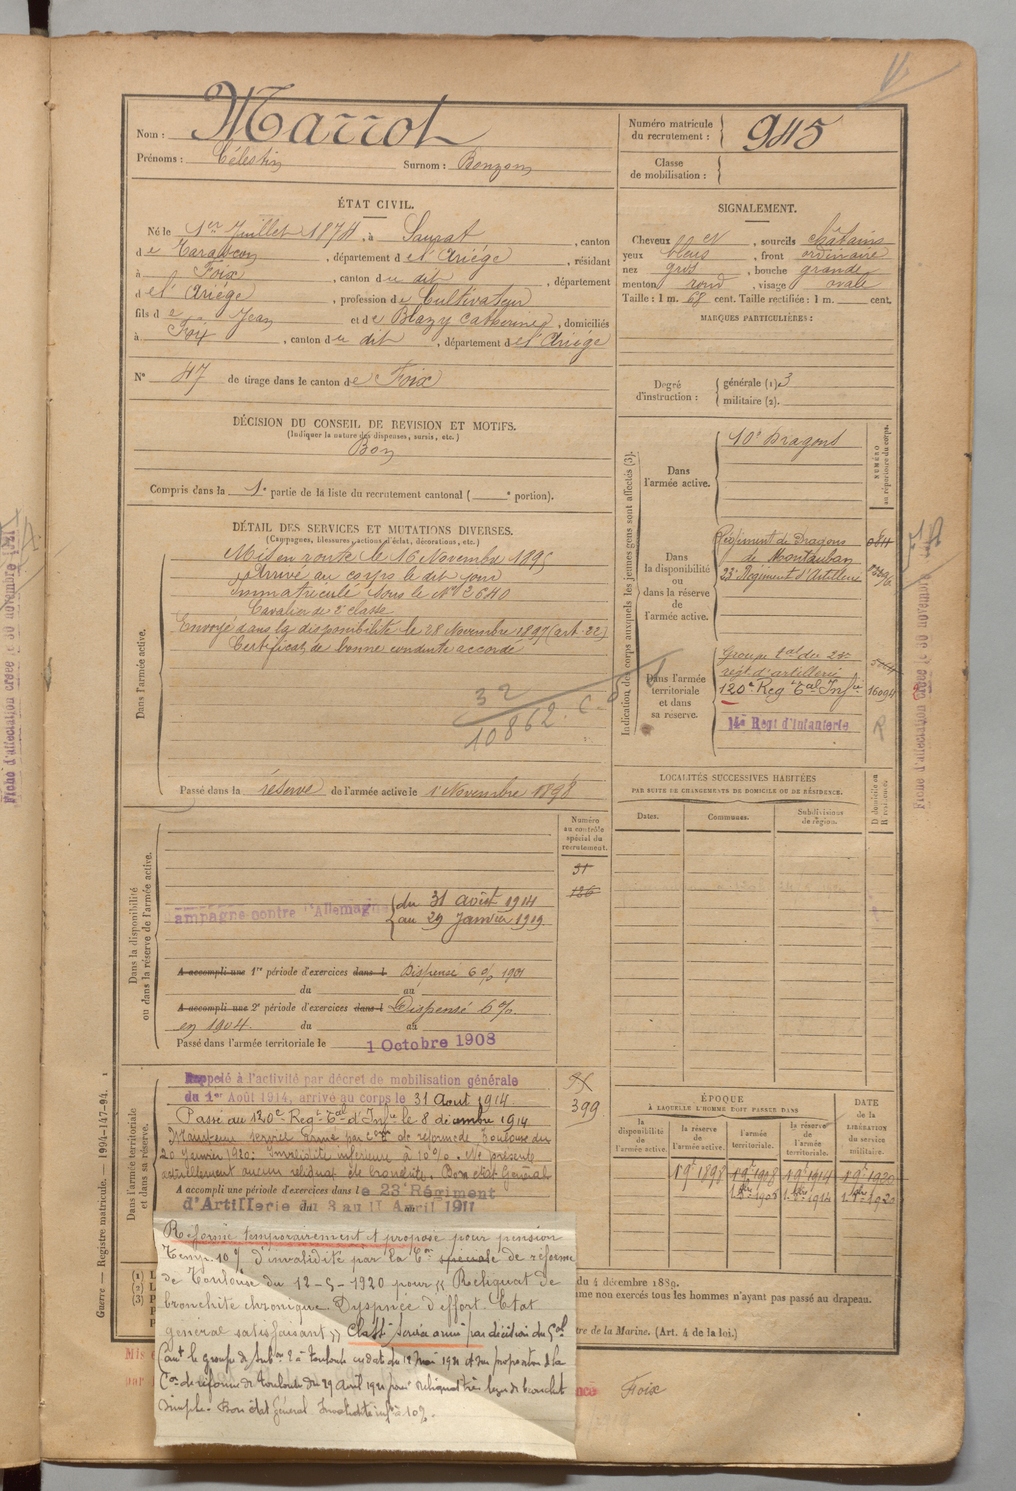 Nom : Marrot
Prénoms : Célestin Surnom : Bonzom
Numéro matricule
du recrutement : 945
Classe
de mobilisation :
ÉTAT CIVIL.
Né le 1er Juillet 1874, à Saurat, canton
de Tarascon, département de l'Ariége, résidant
à Foix, canton du dit, département
de l'Ariége, profession de Cultivateur
fils de Jean et de Blazy Catherine, domiciliés
à Foix, canton du dit, département de l'Ariége
N° 47 de tirage dans le canton de Foix
SIGNALEMENT.
Cheveux et, sourcils châtains
yeux bleus, front ordinaire
nez gros, bouche grande
menton rond, visage ovale
Taille : 1 m. 68 cent. Taille rectifiée : 1 m. cent.
MARQUES PARTICULIÈRES :
Degré
d'instruction :
générale (1) 3
militaire (2).
DÉCISION DU CONSEIL DE RÉVISION ET MOTIFS.
(Indiquer la nature des dispenses, sursis, etc.)
Bon
Compris dans la 1e partie de la liste du recrutement cantonal ( e portion).
DÉTAIL DES SERVICES ET MUTATIONS DIVERSES.
(Campagnes, blessures, actions d'éclat, décorations, etc.)
Dans l'armée active.
Mis en route le 16 Novembre 1895
Arrivé au corps le dit jour
Immatriculé sous le N° 2640
Cavalier de 2e classe
Envoyé dans la disponibilité le 28 Novembre 1897 (art. 22)
Certificat de bonne conduite accordé
32
10862
Passé dans la réserve de l'armée active le 1 Novembre 1898
Indication des corps auxquels les jeunes gens sont affectés (3).
NUMÉRO
au répertoire du corps.
Dans
l'armée active.
10e Dragons
Dans
la disponibilité
ou
dans la réserve
de
l'armée active.
Régiment de Dragons
de Montauban
23e Régiment d'Artillerie
Dans l'armée
territoriale
et dans
sa réserve.
Groupe tal du 23e
régt d'artillerie
120e Reg t Tal Infie 16094
14e Regt d'Infanterie
R
Fiche d'affectation créée le 30 novembre 1921
LOCALITÉS SUCCESSIVES HABITÉES
PAR SUITE DE CHANGEMENTS DE DOMICILE OU DE RÉSIDENCE.
Dates.
Communes.
Subdivisions
de région.
D domicile ou
R résidence.
Dans la disponibilité
ou dans la réserve de l'armée active.
Numéro
au contrôle
spécial du
recrutement.
31
136
ampagne contre l'Allemagne
du 31 août 1914
au 29 Janvier 1919
A accompli une 1re période d'exercices dans l Dispensé 6 % 1901
du au
A accompli une 2e période d'exercices dans l Dispensé 6 %
en 1904. du au
Passé dans l'armée territoriale le 1 Octobre 1908
Dans l'armée territoriale
et dans sa réserve.
399
Rappelé à l'activité par décret de mobilisation générale
du 1er Août 1914, arrivé au corps le 31 Aout 1914
Passé au 120e Regt Tal d'Infie le 8 décembre 1914
Maintenu service armé par Con de réforme de Toulouse du
20 janvier 1920: Invalidité inférieure à 10 %. Ne présente
actuellement aucun reliquat de bronchite. Bon état Général
A accompli une période d'exercices dans le 23e Régiment
d'Artillerie du 3 au 11 Avril 1911
ÉPOQUE
À LAQUELLE L'HOMME DOIT PASSER DANS
DATE
de la
LIBÉRATION
du service
militaire.
la
disponibilité
de
l'armée active.
la réserve
de
l'armée active.
l'armée
territoriale.
la réserve
de l'armée
territoriale.
Réformé temporairement et proposé pour pension
Temp. 10 % d'invalidité par la Con spéciale de réforme
de Toulouse du 12-5-1920 pour " Reliquat de
bronchite chronique. Dyspnée d'effort. Etat
général satisfaisant " Classé service armé par décision du Gal
Cant le groupe de Subon à Toulouse en date du 12 mai 1921 et sur proposition de la
Con de réforme de Toulouse du 29 avril 1921 pour reliquat très léger de bronchite
simple. Bon état Général. Invalidité infre à 10 %.
(1)
(2)
(3)
du 4 décembre 1889.
me non exercés tous les hommes n'ayant pas passé au drapeau.
tre de la Marine. (Art. 4 de la loi.)
Guerre. — Registre matricule. — 1994-147-94.
Mis
par
Foix